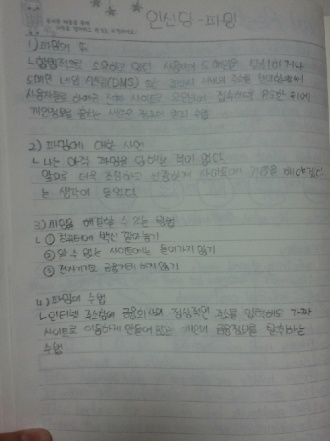 인선당-파밍
1) 파밍의 뜻
합법적으로 소유하고 있던 사용자의 도메인을 탈취하거나
도메인 네임 시스템(DNS) 또는
사용자들로 하여금 진짜 사이트로 오인하여 접속하도록 유도한 뒤에
개인정보를 훔치는 새로운 컴퓨터 범죄 수법
2) 파밍에 대한 사연
나는 아직 파밍을 당해본 적이 없다.
앞으로 더욱 조심하고 신중하게 사이트에 해야겠다
는 생각이 들었다.
3) 파밍을 해결할 수 있는 방법
① 컴퓨터에 백신 깔아놓기
② 알 수 없는 사이트에는 들어가지 않기
③ 전자기기로 금융거래 하지 않기
4) 파밍의 수법
인터넷 주소창에 금융회사의 정상적인 주소를 입력해도 가짜
사이트로 이동하게 만들어 개인의 금융정보를 탈취하는
수법